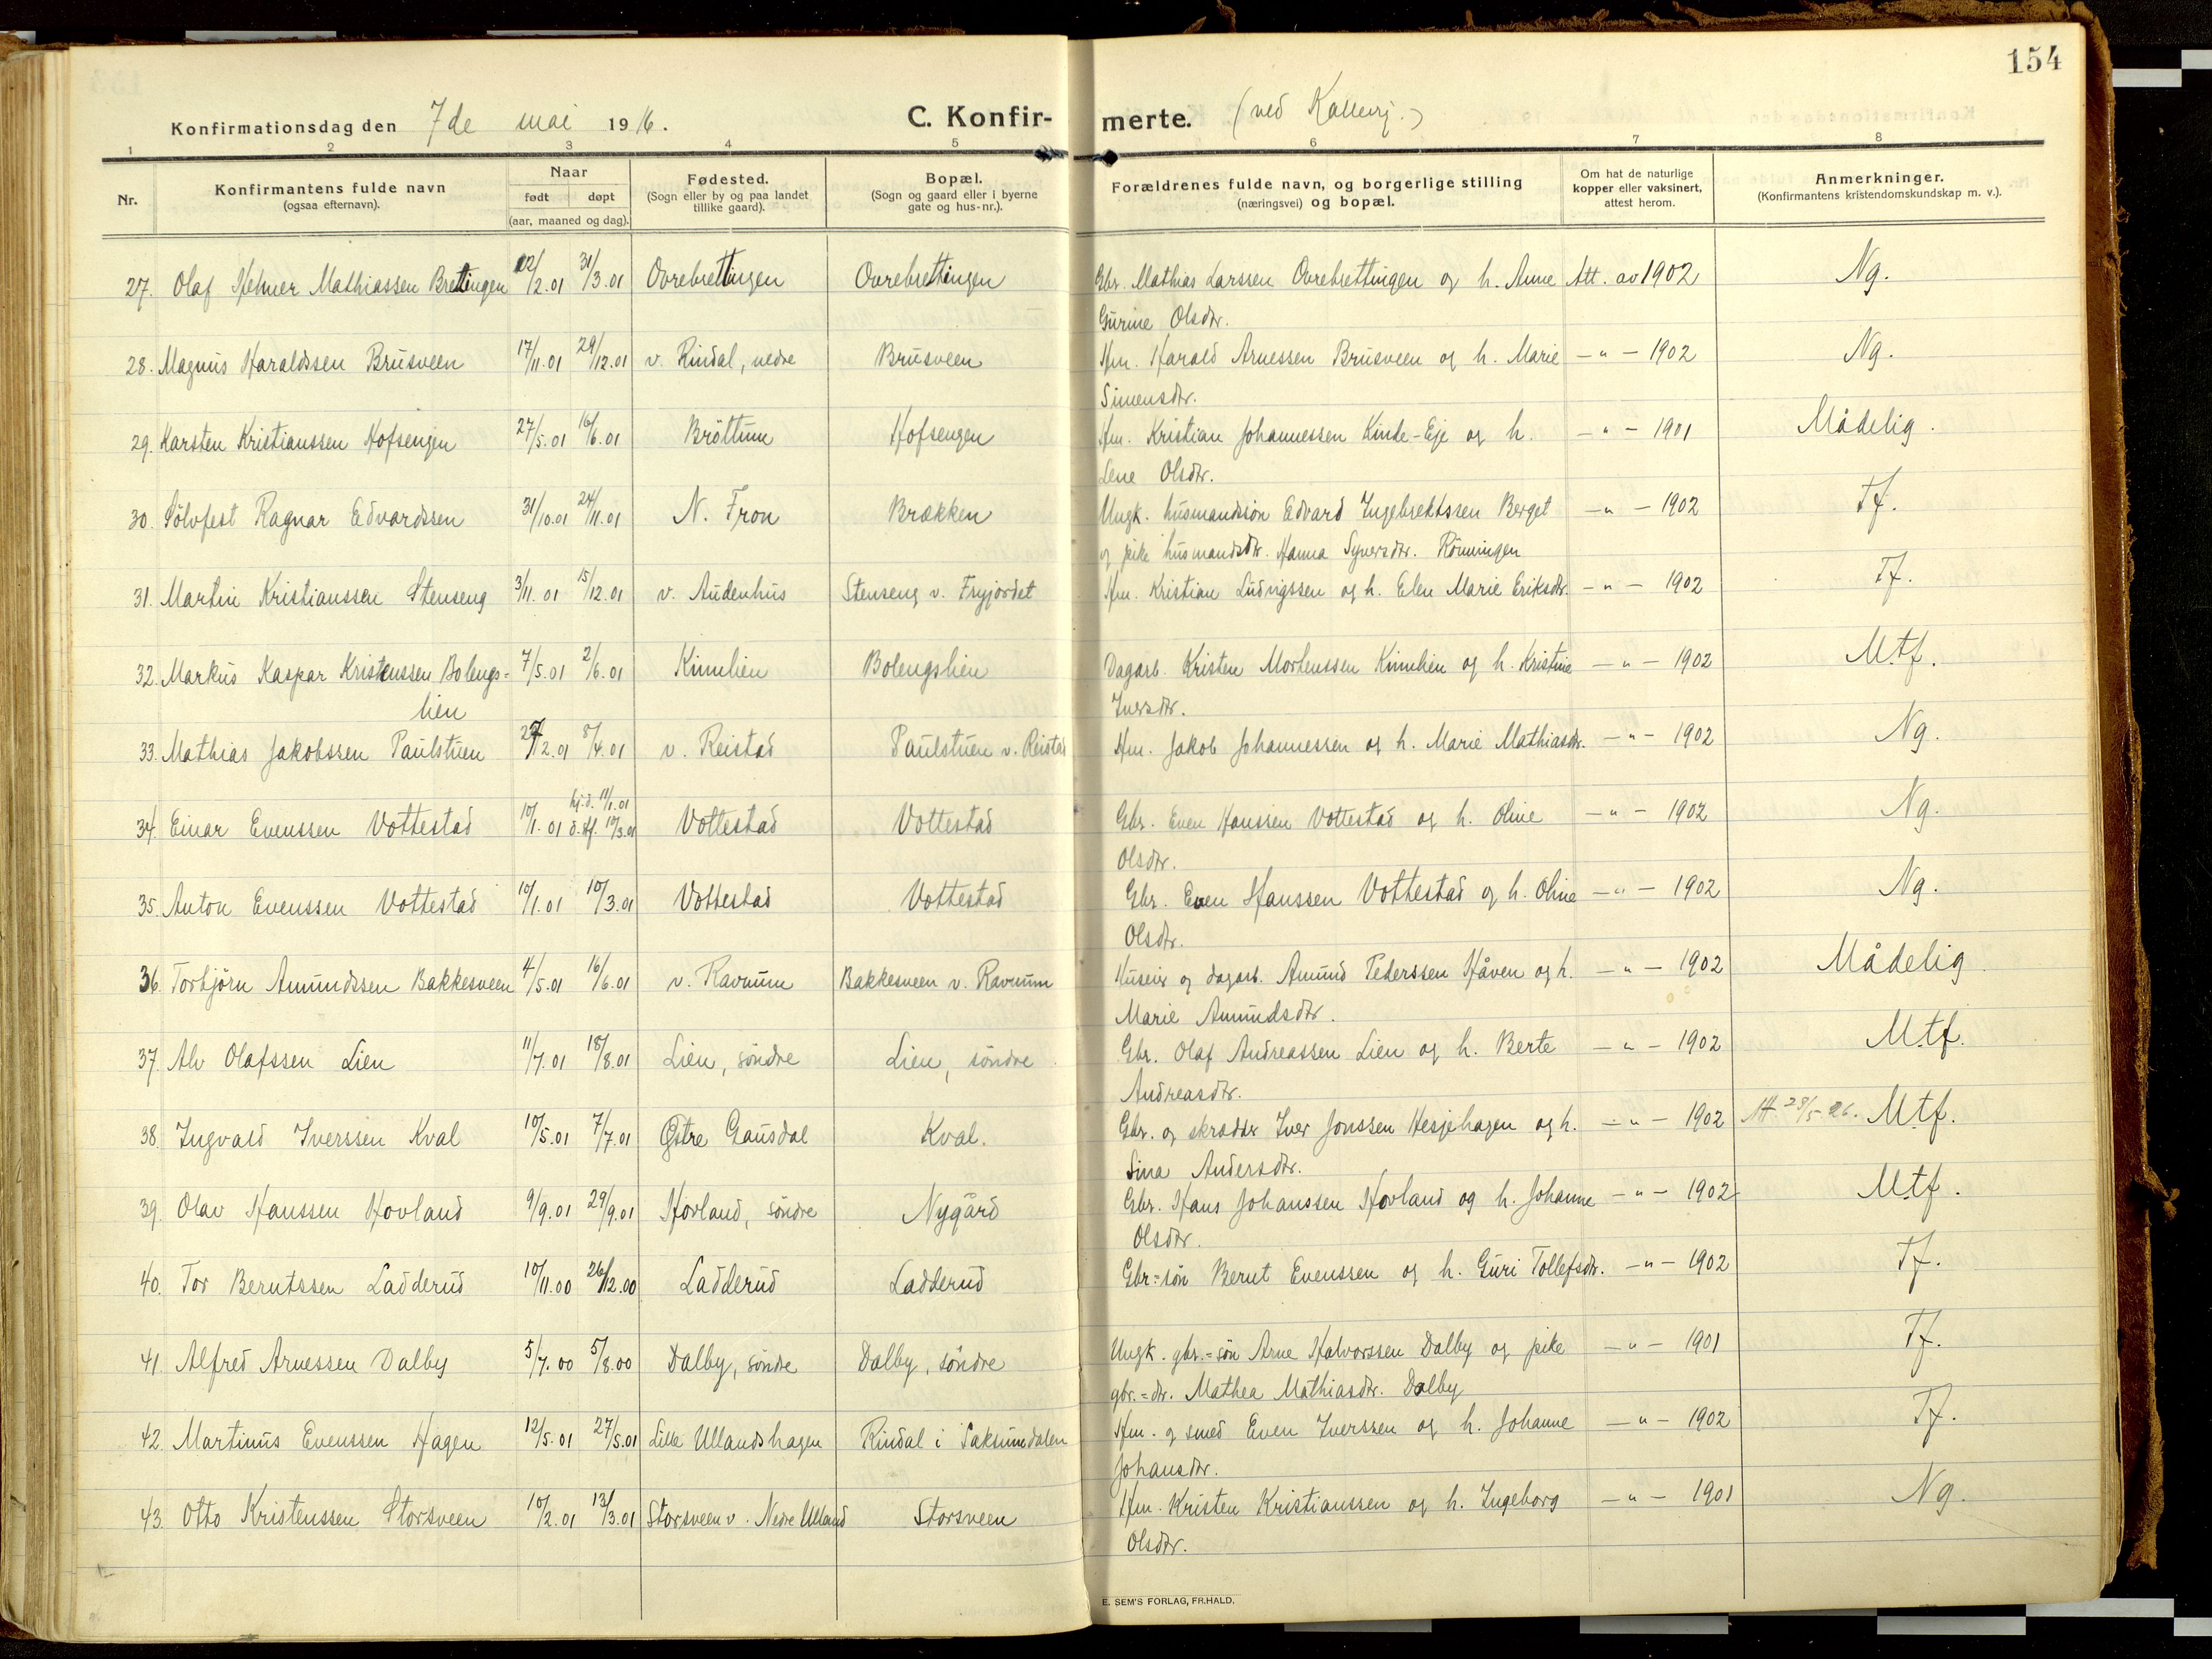 154
Konfirmationsdag den 7de mai 1916. C. Konfir- merte. (ved Kallevj.)
1 2 3 4 5 6 7 8
Nr. Konfirmantens fulde navn (ogsaa efternavn). Naar født døpt (aar, maaned og dag). Fødested. (Sogn eller by og paa landet tillike gaard). Bopæl. (Sogn og gaard eller i byerne gate og hus-nr.). Forældrenes fulde navn, og borgerlige stilling (næringsvei) og bopæl. Om hat de naturlige kopper eller vaksinert, attest herom. Anmerkninger. (Konfirmantens kristendomskundskap m. v.).
27. Olaf Helmer Mathiassen Brettingen 12/2.01 31/3.01 Ovrebrettingen Ovrebrettingen Gbr. Mathias Larssen Ovrebrettingen og h. Anne Att. av 1902 Ng.
Gurine Olsdtr.
28. Magnus Haraldssen Brusveen 17/11.01 29/12.01 v. Rindal, nedre Brusveen Hm. Harald Arnessen Brusveen og h. Marie —"— 1902 Ng.
Simensdtr.
29. Karsten Kristianssen Hofsengen 27/5.01 16/6.01 Bröttum Hofsengen Hm. Kristian Johannessen Kinde-Eje og h. —"— 1901 Mådelig.
Lene Olsdtr.
30. Sölvfest Ragnar Edvardssen 31/10.01 24/11.01 N. Fron Brækken Ungk. husmandssön Edvard Ingebrektssen Berget —"— 1902 Tf.
og pike husmandsdtr. Hanna Syversdtr. Rönningen
31. Martin Kristianssen Stenseng 3/11.01 15/12.01 v. Audenhus Stenseng v. Fryjordet Hm. Kristian Ludvigssen og h. Elen Marie Eriksdtr. —"— 1902 Tf.
32. Markus Kaspar Kristenssen Bolengs= 7/5.01 2/6.01 Kinnlien Bolengslien Dagarb. Kristen Mortenssen Kinnlien og h. Kristine —"— 1902 Mtf.
lien Iversdtr.
33. Mathias Jakobssen Paulstuen /2.01 8/4.01 v. Reistad Paulstuen v. Reistad Hm. Jakob Johannessen og h. Marie Mathiasdtr. —"— 1902 Ng.
hj.d. 11/1.01
34. Einar Evenssen Vottestad 10/1.01 d.st. 10/3.01 Vottestad Vottestad Gbr. Even Hanssen Vottestad og h. Oline —"— 1902 Ng.
Olsdtr.
35. Anton Evenssen Vottestad 10/1.01 10/3.01 Vottestad Vottestad Gbr. Even Hanssen Vottestad og h. Oline —"— 1902 Ng.
Olsdtr.
36. Torbjörn Amundssen Bakkesveen 4/5.01 16/6.01 v. Ravnum Bakkesveen v. Ravnum Huseier og dagarb. Amund Pederssen Håven og h. —"— 1902 Mådelig
Marie Amundsdtr.
37. Alv Olafssen Lien 11/7.01 18/8.01 Lien, söndre Lien, söndre Gbr. Olaf Andreassen Lien og h. Berte —"— 1902 Mtf.
Andreasdtr.
38. Ingvald Iverssen Kval 10/5.01 7/7.01 Östre Gausdal Kval. Gbr. og skrædder Iver Jonssen Hesjehagen og h. —"— 1902 Att. 28/5-26. Mtf.
Sina Andersdtr.
39. Olav Hanssen Hovland 9/9.01 29/9.01 Hovland, söndre Nygård Gbr. Hans Johanssen Hovland og h. Johanne —"— 1902 Mtf.
Olsdtr.
40. Tor Berntssen Ladderud 10/11.00 26/12.00 Ladderud Ladderud Gbr=sön Bernt Evenssen og h. Guri Tollefsdtr. —"— 1902 Tf.
41. Alfred Arnessen Dalby 5/7.00 5/8.00 Dalby, söndre Dalby, söndre Ungk. gbr.=sön Arne Halvorssen Dalby og pike —"— 1901 Tf.
gbr.=dtr. Mathea Mathiasdtr. Dalby
42. Martinus Evenssen Hagen 12/5.01 27/5.01 Lille Ullandshagen Rindal i Saksumdalen Hm. og smed Even Iverssen og h. Johanne —"— 1902 Tf.
Johansdtr.
43. Otto Kristenssen Storsveen 10/2.01 13/3.01 Storsveen v. Nedre Ulland Storsveen Hm. Kristen Kristianssen og h. Ingeborg —"— 1901 Ng.
Olsdtr.
E. SEM'S FORLAG, FR.HALD.